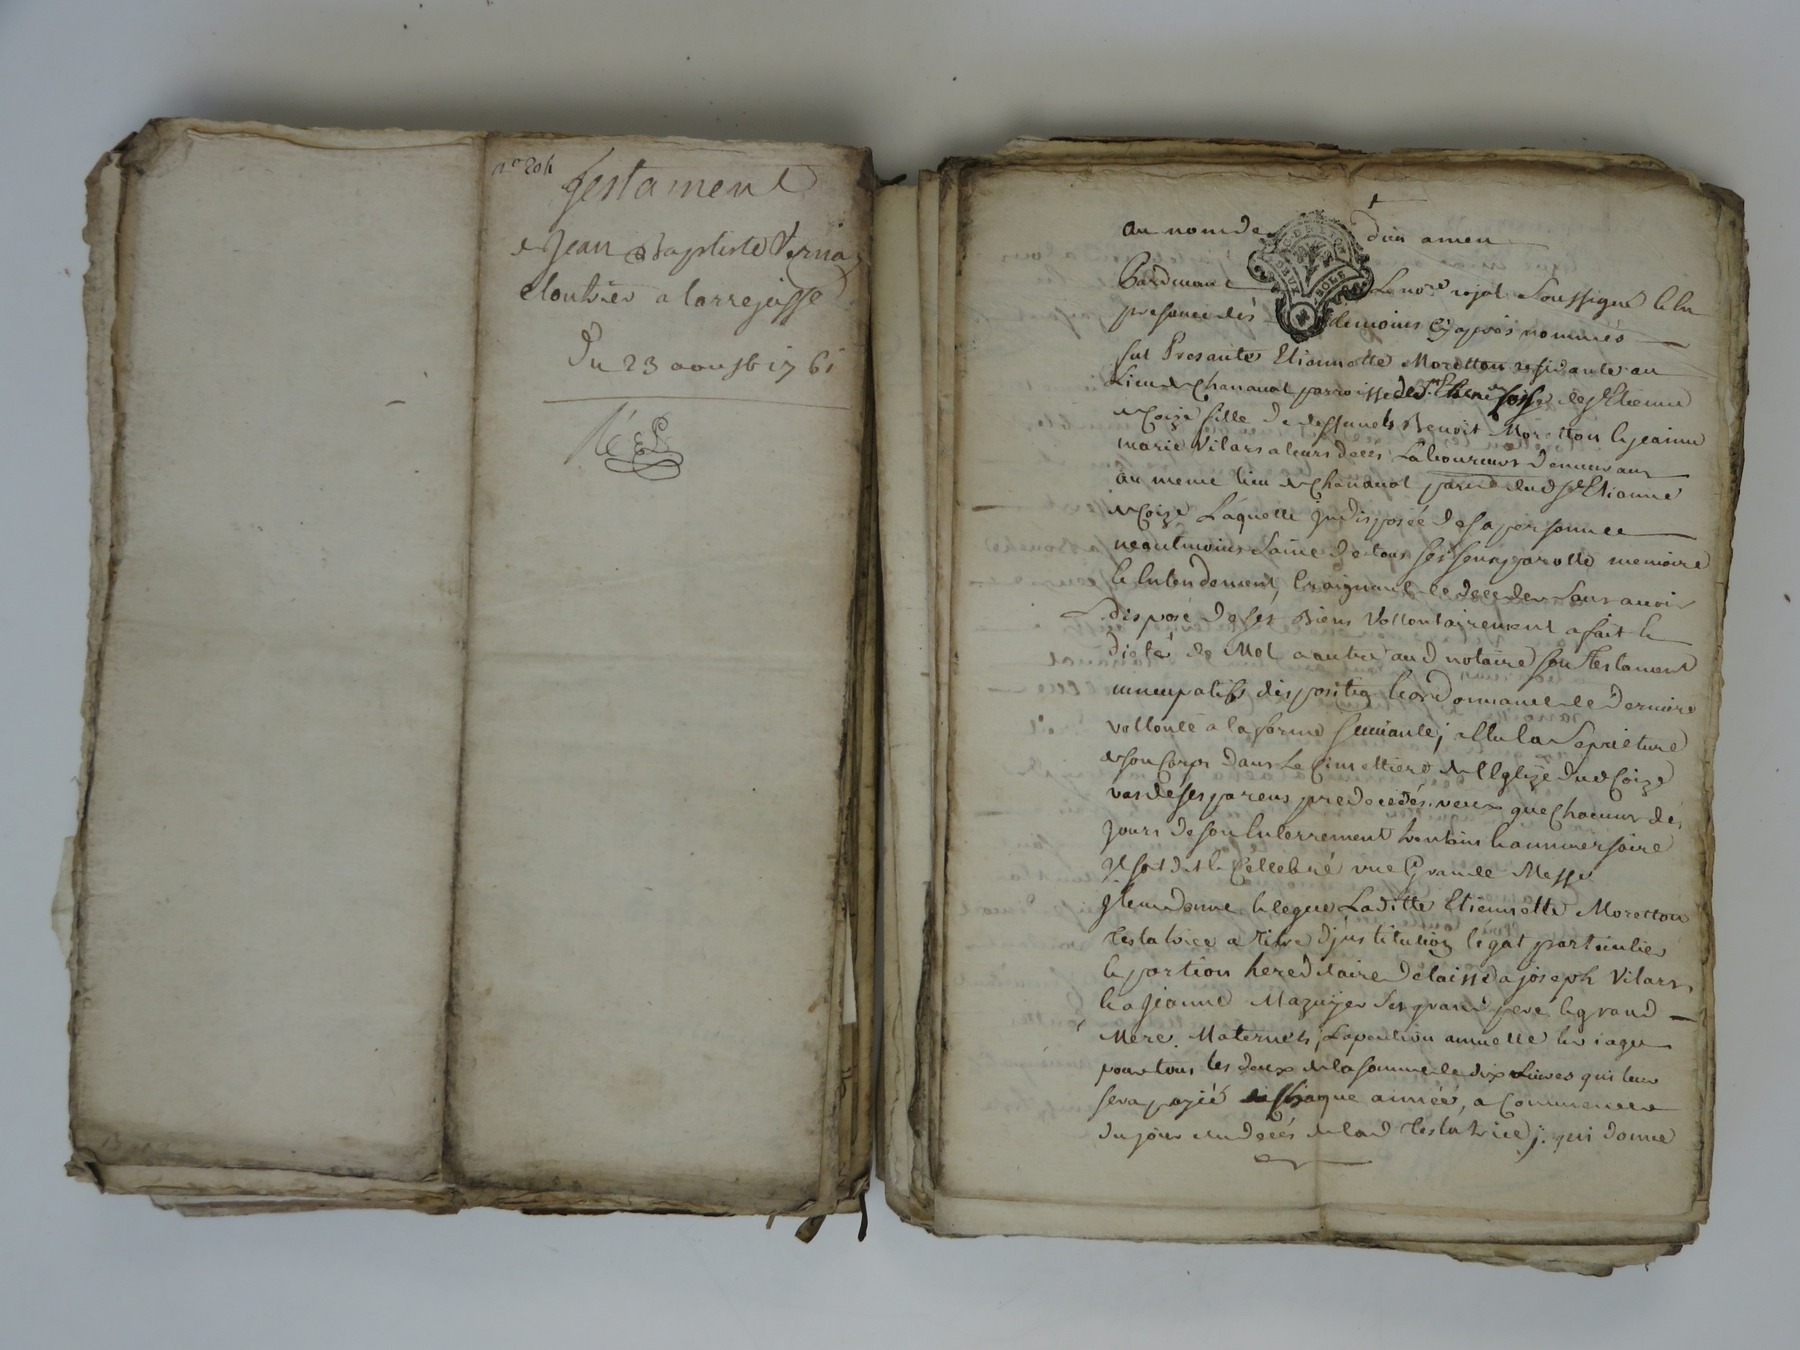 n° 204
Testament
de Jean Baptiste Verna
cloutier a larrejasse
Du 23 aoust 1761
au nom de dieu amen
Pardevant Le no.re royal soussigné & en
presence des temoins cy apprès nommés
fut Presante Etiennette Moretton residante au
Lieu de Chanavat parroisse de St. Etienne
de Coize fille de deffunts Benoit Moretton & jeanne
marie Vilars a leurs decés Laboureurs demeurans
au meme lieu de Chanavat paroisse dud. St Etienne
de Coize, Laquelle jndisposée de sa personne
neantmoins saine de tous ses sens, parolle memoire
& entendement, Craignant de deceder sans avoir
disposé de ses Biens Vollontairement a fait &
dicté de Mot a autre aud notaire son Testament
nuncupatif, disposition & ordonnance de derniere
vollonté a la forme suivante; Ellu la Sepulture
de son Corps dans Le Cimettiere de l'Eglize dud Coize
vas de ses parens predecedés, veux que Chacuns des
jours de son Enterrement & anniversaire
Il soit dit & Cellebré une Grande Messe
Item donne & legue Laditte Etiennette Moretton
Testatrice a Titre d'jnstitution légat particulier
& portion hereditaire delaisse a joseph Vilars
& a Jeanne Mazuyer ses grand pere & grand
Mere Maternels, La pention annuelle & viagere
pour tous les deux de la somme de dix Livres qui leur
sera payéé chaque année, a Commencer
du jour du decés de lad Testatrice; qui donne